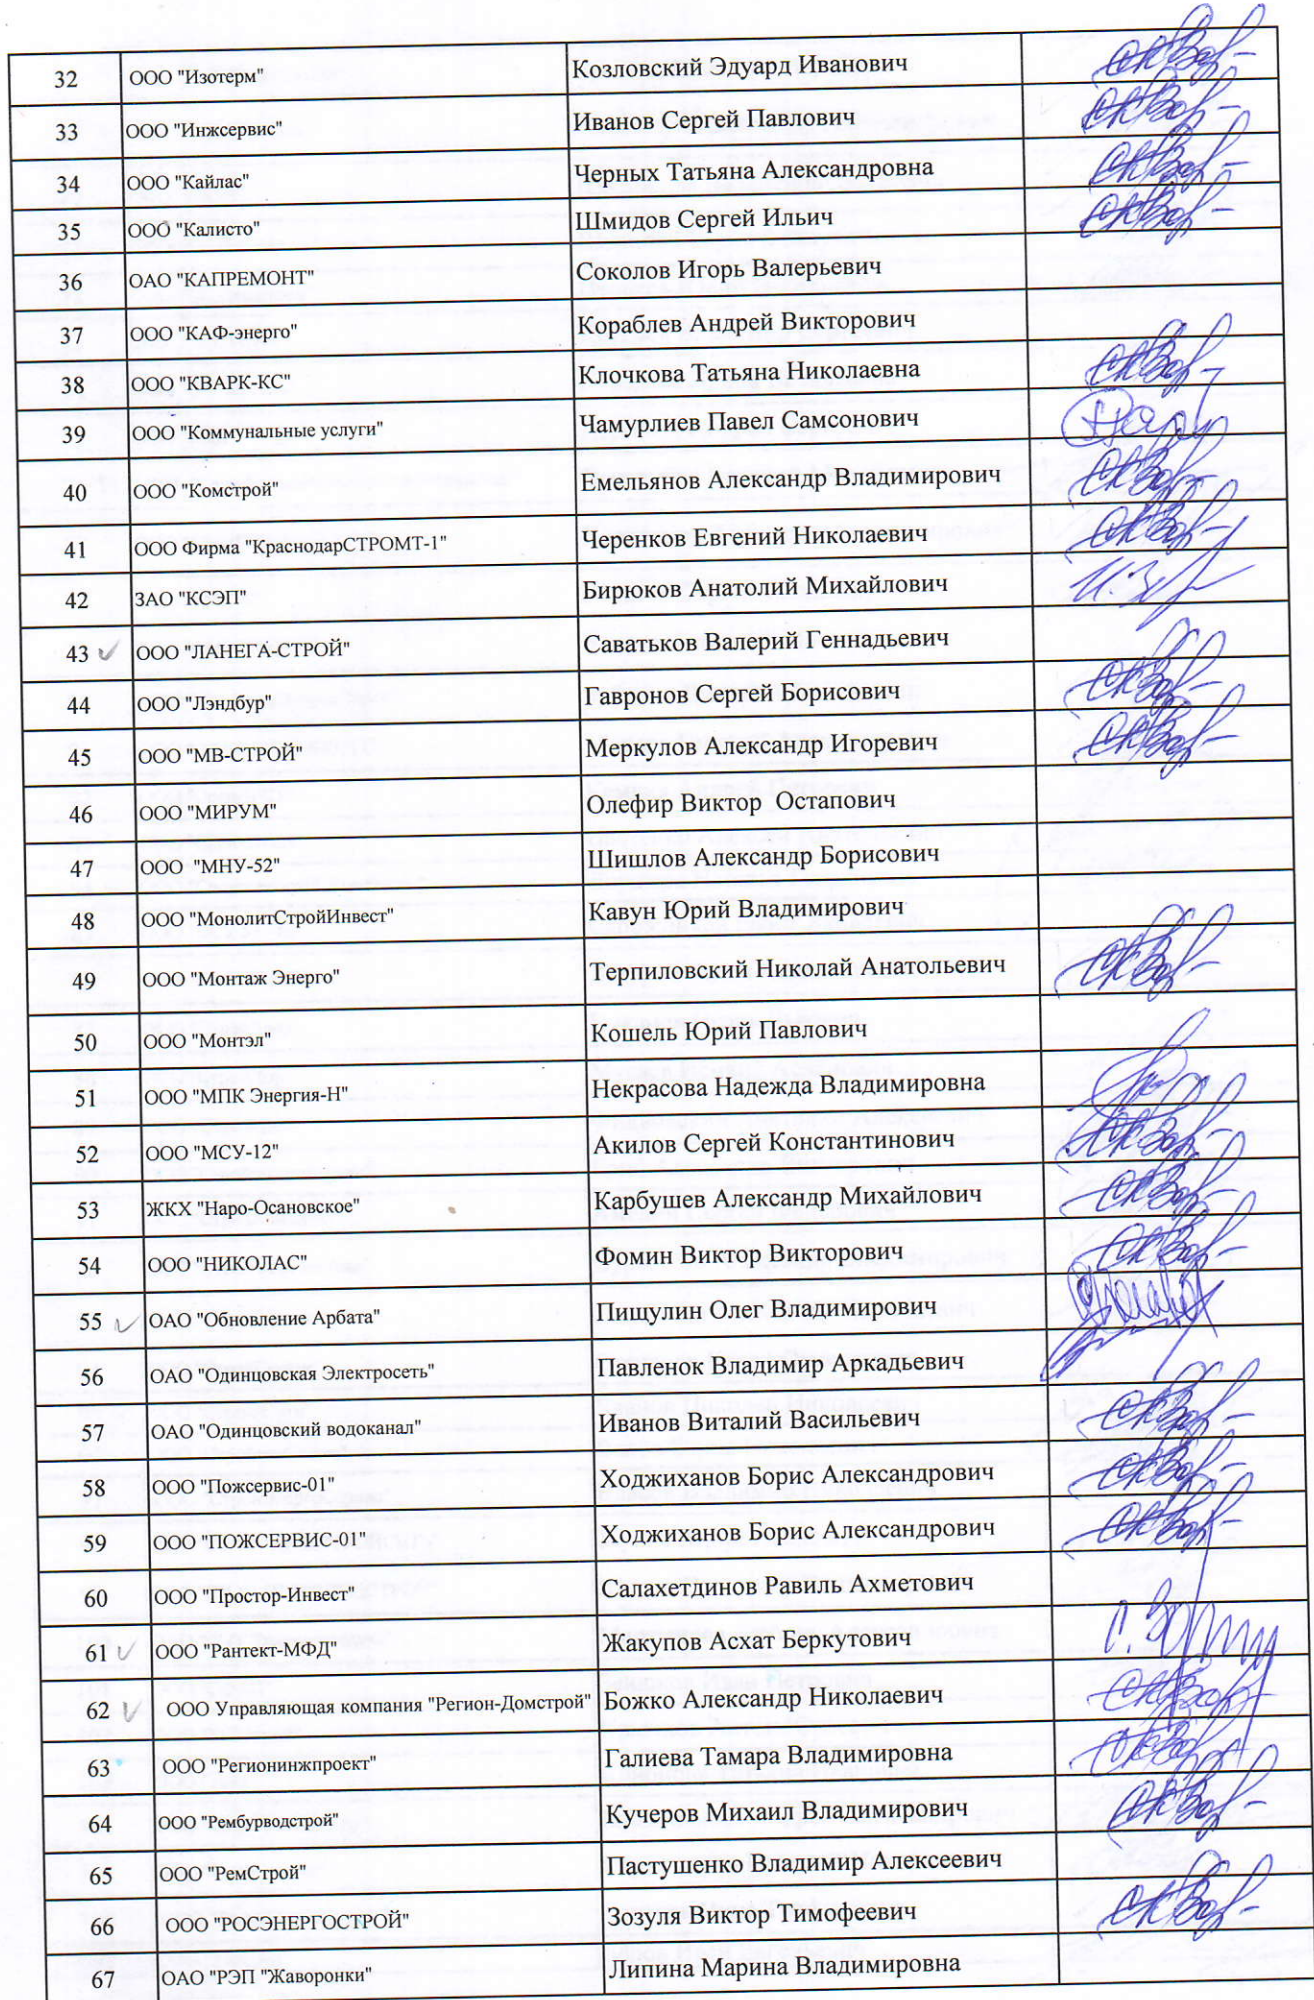 32 ООО "Изотерм" Козловский Эдуард Иванович
33 ООО "Инжсервис" Иванов Сергей Павлович
34 ООО "Кайлас" Черных Татьяна Александровна
35 ООО "Калисто" Шмидов Сергей Ильич
36 ОАО "КАПРЕМОНТ" Соколов Игорь Валерьевич
37 ООО "КАФ-энерго" Кораблев Андрей Викторович
38 ООО "КВАРК-КС" Клочкова Татьяна Николаевна
39 ООО "Коммунальные услуги" Чамурлиев Павел Самсонович
40 ООО "Комстрой" Емельянов Александр Владимирович
41 ООО Фирма "КраснодарСТРОМТ-1" Черенков Евгений Николаевич
42 ЗАО "КСЭП" Бирюков Анатолий Михайлович
43 ООО "ЛАНЕГА-СТРОЙ" Саватьков Валерий Геннадьевич
44 ООО "Лэндбур" Гавронов Сергей Борисович
45 ООО "МВ-СТРОЙ" Меркулов Александр Игоревич
46 ООО "МИРУМ" Олефир Виктор Остапович
47 ООО "МНУ-52" Шишлов Александр Борисович
48 ООО "МонолитСтройИнвест" Кавун Юрий Владимирович
49 ООО "Монтаж Энерго" Терпиловский Николай Анатольевич
50 ООО "Монтэл" Кошель Юрий Павлович
51 ООО "МПК Энергия-Н" Некрасова Надежда Владимировна
52 ООО "МСУ-12" Акилов Сергей Константинович
53 ЖКХ "Наро-Осановское" Карбушев Александр Михайлович
54 ООО "НИКОЛАС" Фомин Виктор Викторович
55 ОАО "Обновление Арбата" Пищулин Олег Владимирович
56 ОАО "Одинцовская Электросеть" Павленок Владимир Аркадьевич
57 ОАО "Одинцовский водоканал" Иванов Виталий Васильевич
58 ООО "Пожсервис-01" Ходжиханов Борис Александрович
59 ООО "ПОЖСЕРВИС-01" Ходжиханов Борис Александрович
60 ООО "Простор-Инвест" Салахетдинов Равиль Ахметович
61 ООО "Рантект-МФД" Жакупов Асхат Беркутович
62 ООО Управляющая компания "Регион-Домстрой" Божко Александр Николаевич
63 ООО "Регионинжпроект" Галиева Тамара Владимировна
64 ООО "Рембурводстрой" Кучеров Михаил Владимирович
65 ООО "РемСтрой" Пастушенко Владимир Алексеевич
66 ООО "РОСЭНЕРГОСТРОЙ" Зозуля Виктор Тимофеевич
67 ОАО "РЭП "Жаворонки" Липина Марина Владимировна